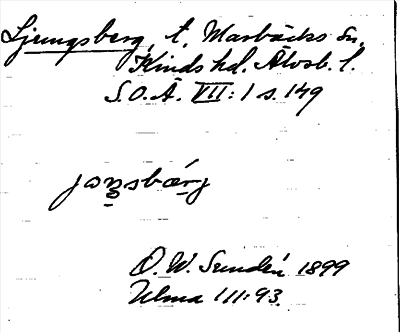 Ljungsberg, t. Marbäcks sn.
Kinds hd. Älvsb. l.
S.O.Ä. VII: 1 s. 149
O. W. Sundén 1899
Ulma 111:93.